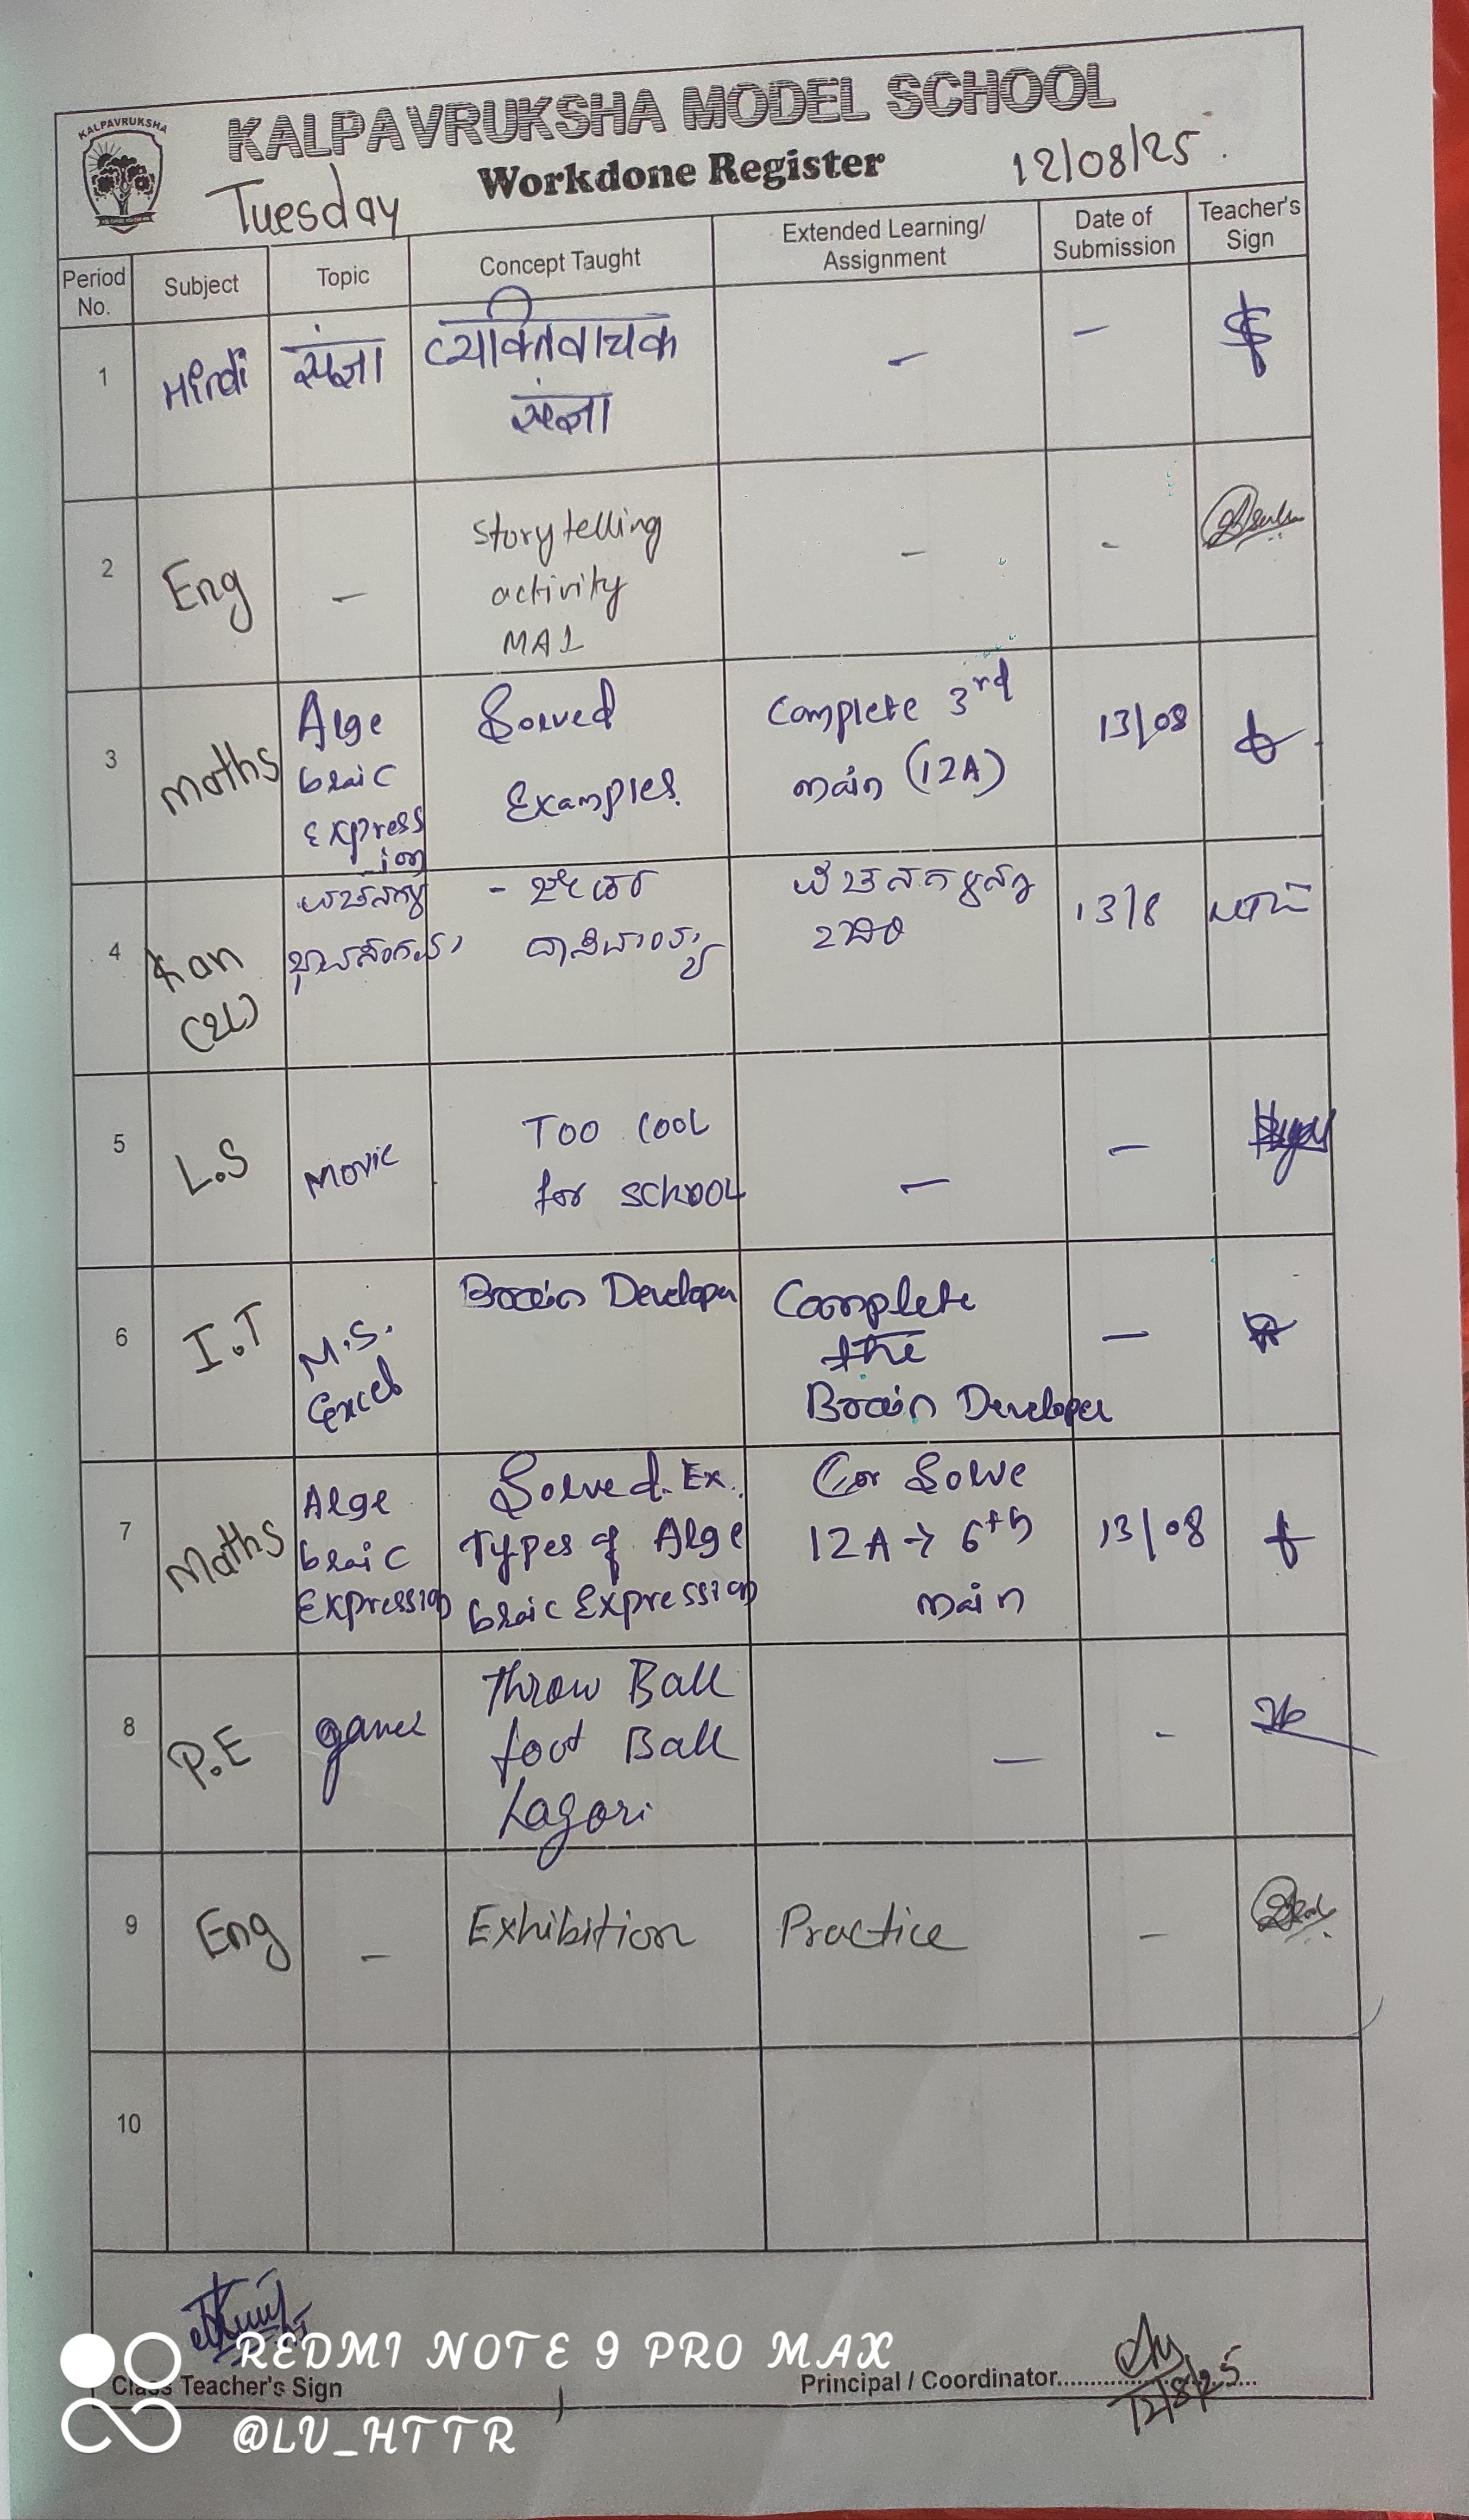 KALPAVRUKSHA
KALPAVRUKSHA MODEL SCHOOL
Workdone Register
12/08/25
Tuesday
Period No.
Subject
Topic
Concept Taught
Extended Learning/
Assignment
Date of
Submission
Teacher's
Sign
1
Hindi
संज्ञा
व्यक्तिवाचक
संज्ञा
–
–
2
Eng
–
Story telling
activity
MA1
–
-
3
Maths
Alge
braic
Express
ion
Solved
Examples.
Complete 3rd
main (12A)
13/08
4
Kan
(2L)
13/8
5
L.S
Movie
Too cool
for school
–
–
6
I.T
M.S.
Excel
Brain Developer
Complete
the
Brain Developer
–
7
Maths
Alge
braic
Expression
Solved. Ex.
Types of Alge
braic Expression
Solve
12A → 6th
main
13/08
8
P.E
games
Throw Ball
foot Ball
Lagori
–
-
9
Eng
–
Exhibition
Practice
–
10
Class Teacher's Sign
Principal / Coordinator
12/8/25
REDMI NOTE 9 PRO MAX
@LV_HTTR